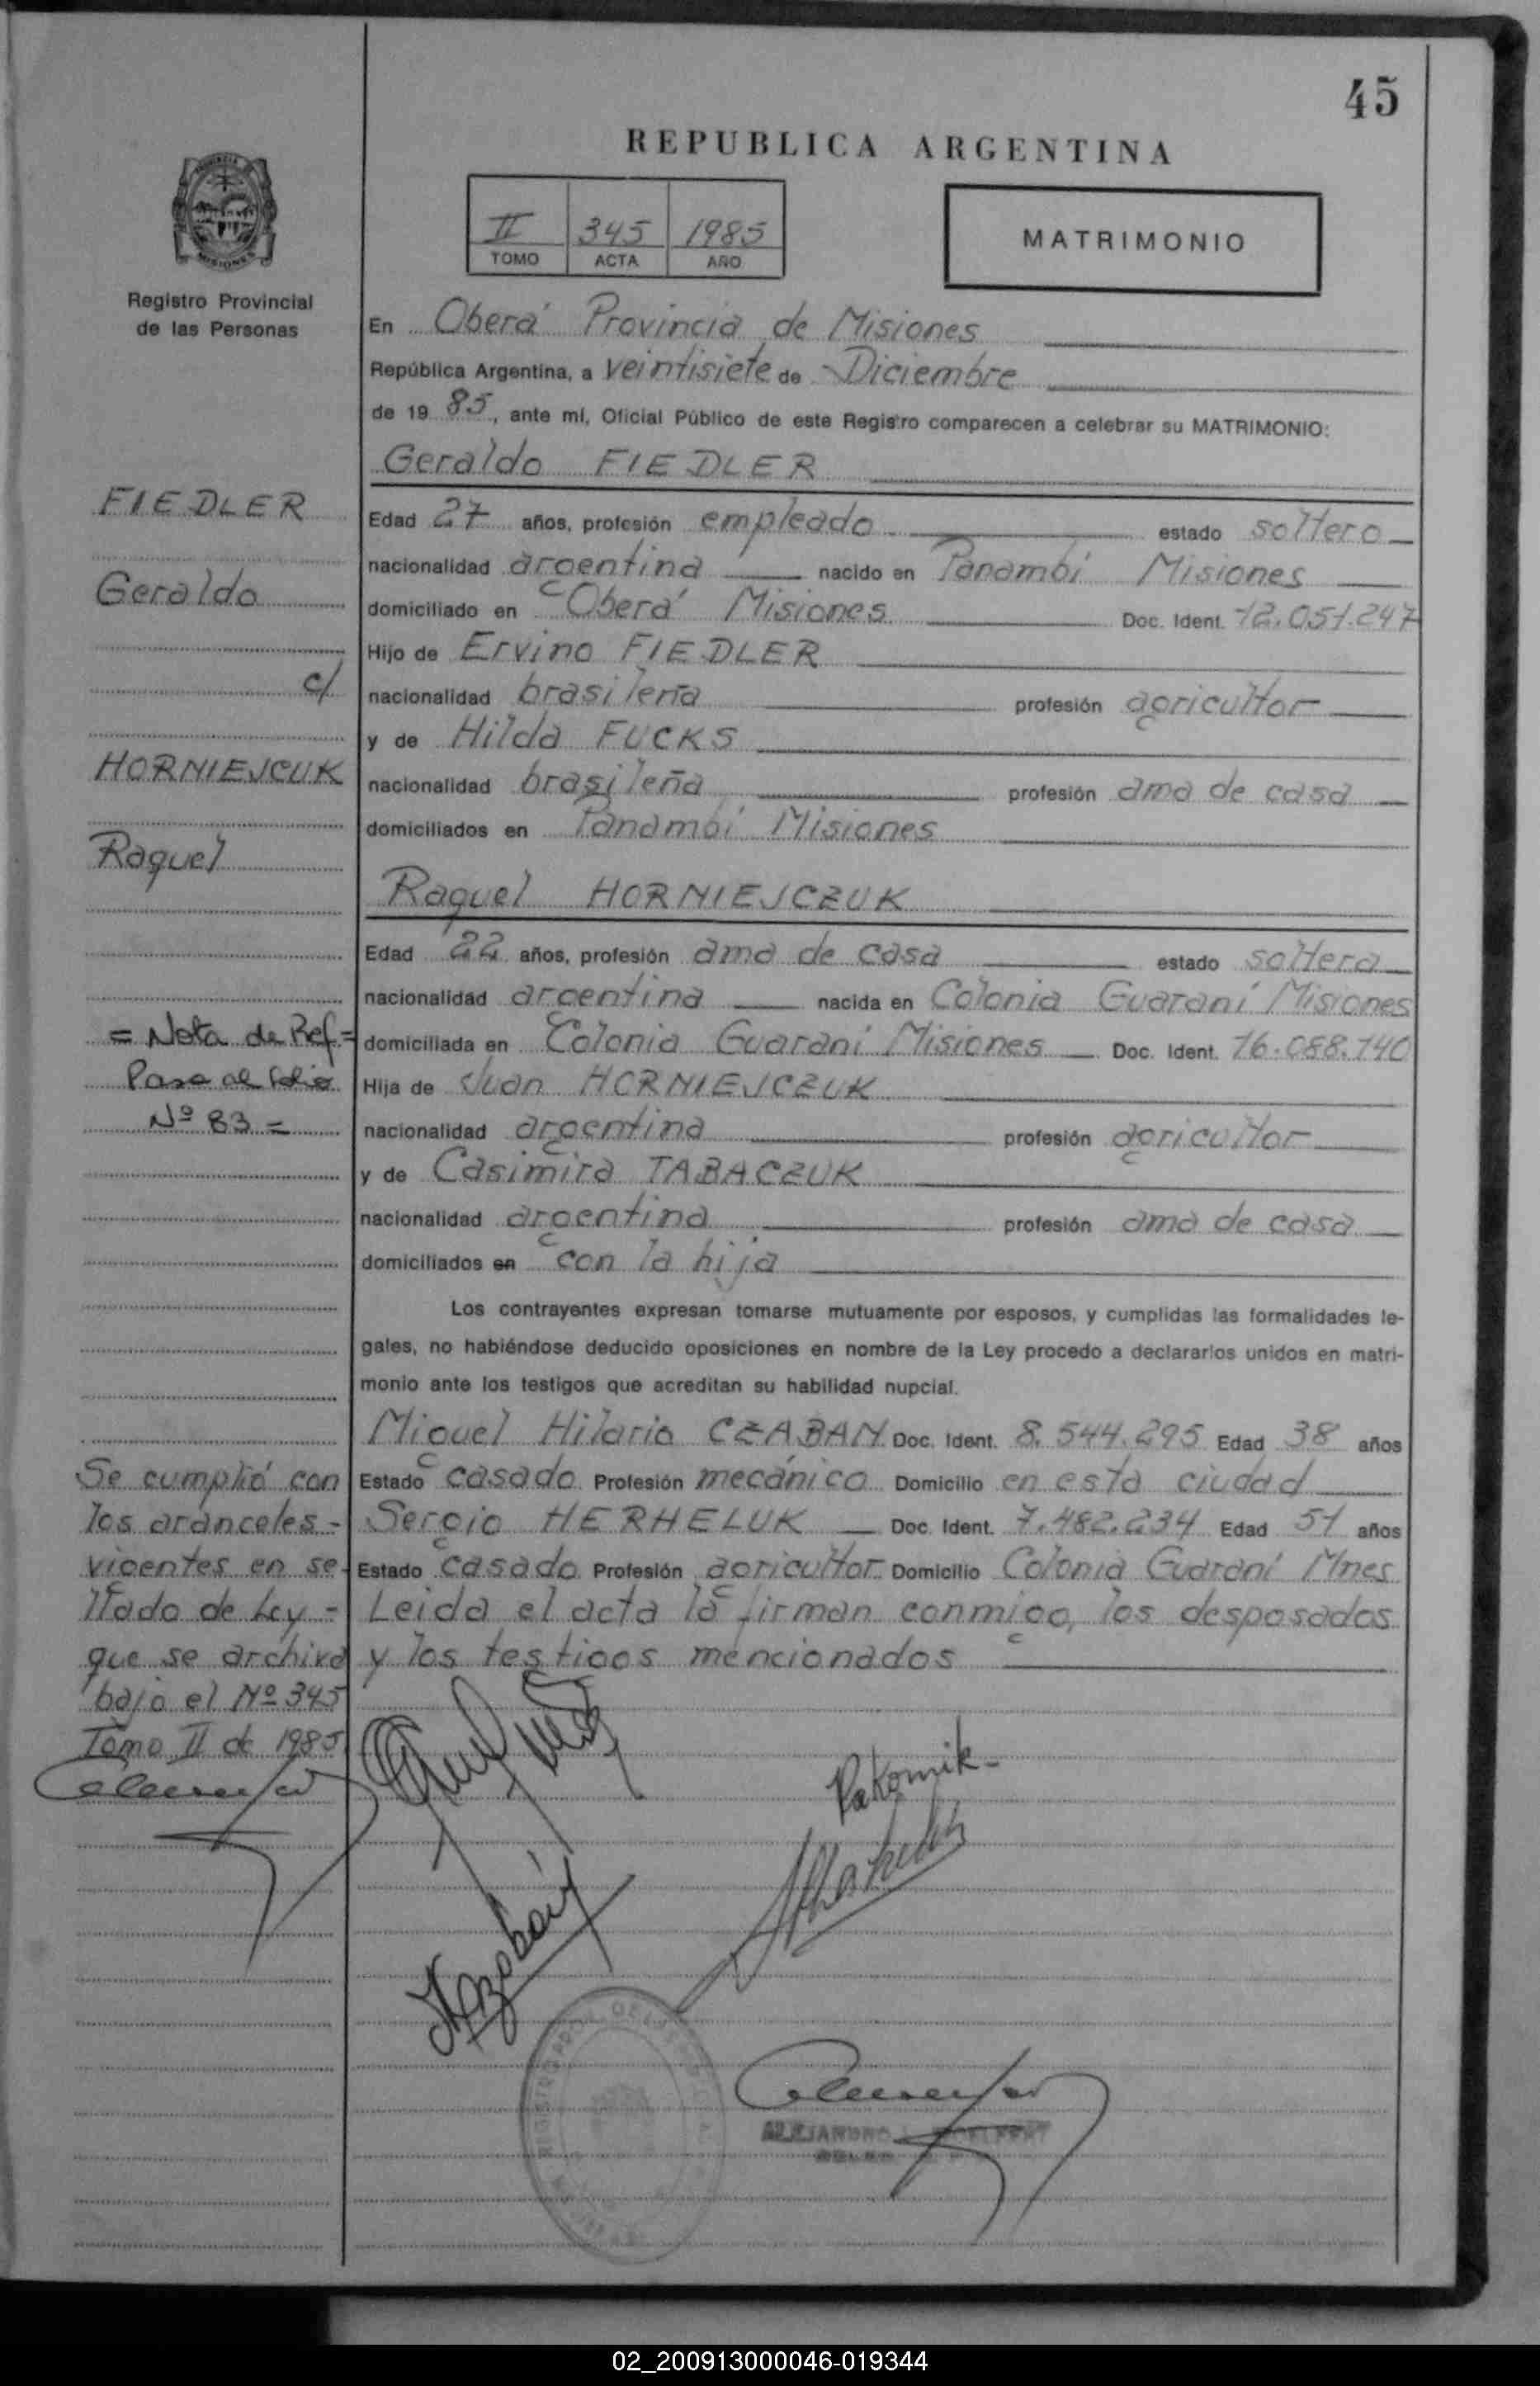 45
REPUBLICA ARGENTINA
II 345 1985
TOMO ACTA AÑO
MATRIMONIO
MISIONES
Registro Provincial
de las Personas
En Oberá Provincia de Misiones
República Argentina, a veintisiete de Diciembre
de 19 85, ante mí, Oficial Público de este Registro comparecen a celebrar su MATRIMONIO:
Geraldo FIEDLER
Edad 27 años, profesión empleado estado soltero
nacionalidad argentina nacido en Panambí Misiones
domiciliado en Oberá Misiones Doc. Ident. 12.051.247
Hijo de Ervino FIEDLER
nacionalidad brasileña profesión agricultor
y de Hilda FUCKS
nacionalidad brasileña profesión ama de casa
domiciliados en Panambí Misiones
Raquel HORNIEJCZUK
Edad 22 años, profesión ama de casa estado soltera
nacionalidad argentina nacida en Colonia Guaraní Misiones
domiciliada en Colonia Guaraní Misiones Doc. Ident. 16.088.140
Hija de Juan HORNIEJCZUK
nacionalidad argentina profesión agricultor
y de Casimira TABACZUK
nacionalidad argentina profesión ama de casa
domiciliados en con la hija
Los contrayentes expresan tomarse mutuamente por esposos, y cumplidas las formalidades le-
gales, no habiéndose deducido oposiciones en nombre de la Ley procedo a declararlos unidos en matri-
monio ante los testigos que acreditan su habilidad nupcial.
Miguel Hilario CZABAN Doc. Ident. 8.544.295 Edad 38 años
Estado casado Profesión mecánico Domicilio en esta ciudad
Sergio HERHELUK Doc. Ident. 7.482.234 Edad 51 años
Estado casado Profesión agricultor Domicilio Colonia Guaraní Mnes
Leida el acta la firman conmigo, los desposados
y los testigos mencionados
FIEDLER
Geraldo
c/
HORNIEJCUK
Raquel
= Nota de Ref. =
Pasa al folio
Nº 83 =
Se cumplió con
los aranceles -
vigentes en se-
llado de Ley -
que se archiva
bajo el Nº 345
Tomo II de 1985
ALEJANDRO
02_200913000046-019344